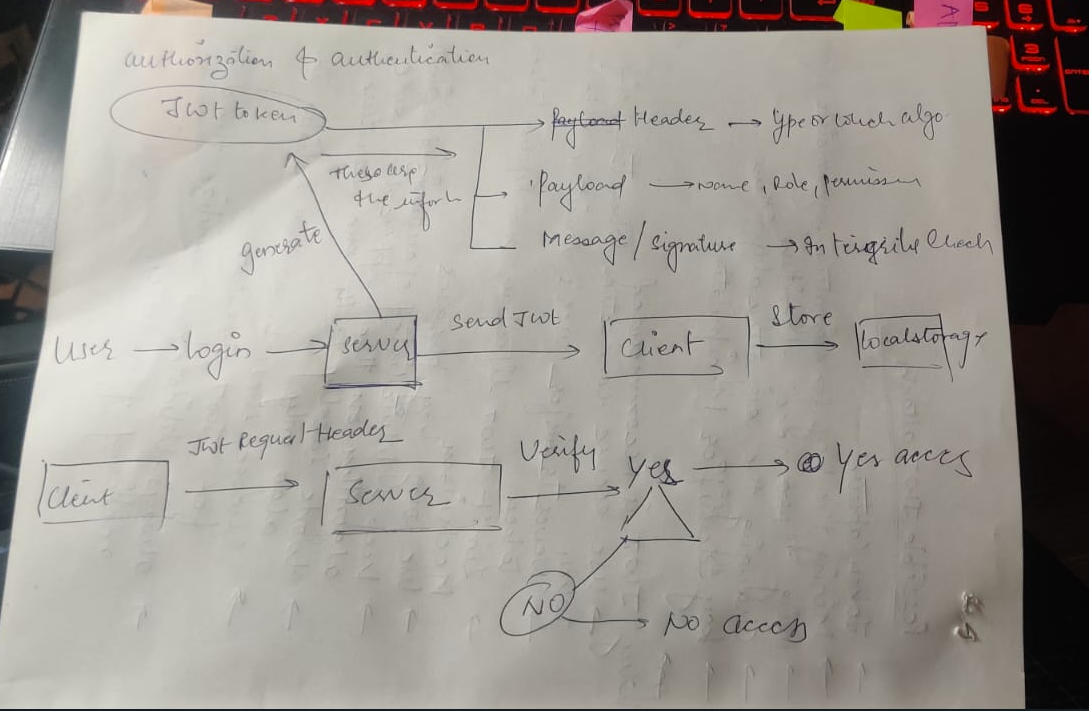 authorization & authentication
JWT token
Payload Header → type or which algo
these resp
the inform
Payload → name, Role, permission
Message/signature → Integrity Check
generate
User → login → server
Send JWT
Client
Store
localstorage
JWT Request Header
Client
Server
Verify
Yes → Yes acces
NO → No acces